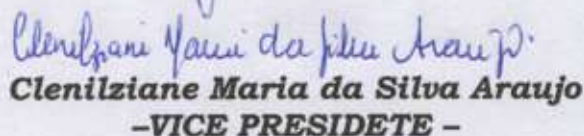 Clenilziane Maria da Silva Araujo
Clenilziane Maria da Silva Araujo
–VICE PRESIDETE –